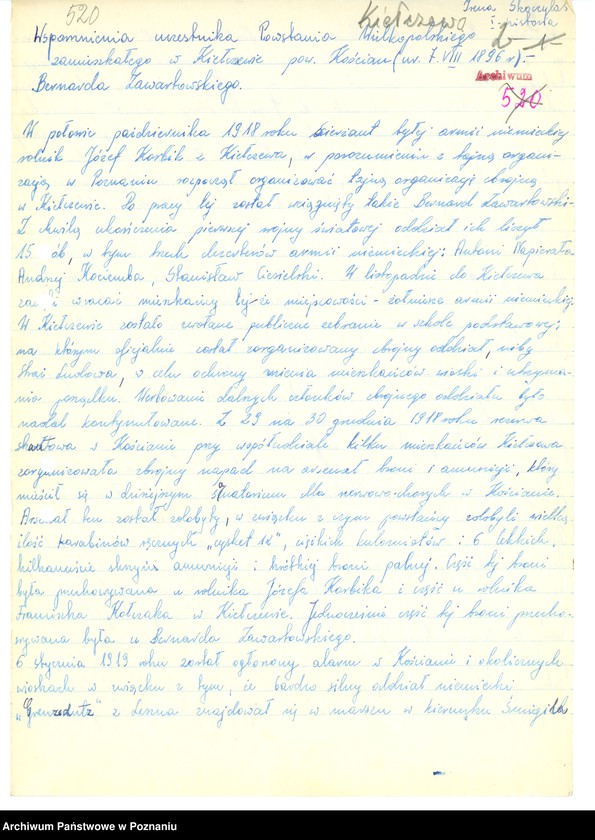 520
Kiełczewo
Irena Skorzylas
I
Wspomnienia uczestnika Powstania Wielkopolskiego
zamieszkałego w Kiełczewie pow. Kościan (ur. 7. VIII 1896 r) . -
Bernarda Ławartowskiego.
Archiwum
520
W połowie października 1918 roku sierżant byłej armii niemieckiej
rolnik Józef Korbik z Kiełczewa, w porozumieniu z tajną organi-
zacją w Poznaniu rozpoczął organizować tajną organizację zbrojną
w Kiełczewie. Do pracy tej został wciągnięty także Bernard Ławartowski.
Z chwilą ukończenia pierwszej wojny światowej oddział ich liczył
15 ób, w tym trzech dezerterów armii niemieckiej: Antoni Napierała
Andrzej Kociemba, Stanisław Ciesielski. W listopadzie do Kiełczewa
zac i wracać mieszkańcy tej-że miejscowości - żołnierze armii niemieckiej.
W Kiełczewie zostało zwołane publiczne zebranie w szkole podstawowej;
na którym oficjalnie został zorganizowany zbrojny oddział, niby
Straż Ludowa, w celu ochrony mienia mieszkańców wioski i utrzyma-
nia porządku. Werbowanie dalszych członków zbrojnego oddziału było
nadal kontynuowane. Z 29 na 30 grudnia 1918 roku rezerwa
skautowa w Kościanie przy współudziale kilku mieszkańców Kiełczewa
zorganizowała zbrojny napad na arsenał broni i amunicji, który
mieścił się w dzisiejszym Sanatorium dla nerwowo-chorych w Kościanie.
Arsenał ten został zdobyty, w związku z czym powstańcy zdobyli wielką
ilość karabinów ręcznych, ciężkich kulomiotów i 6 lekkich,
kilkanaście skrzyń amunicji i krótkiej broni palnej. Część tej broni
była przechowywana u rolnika Józefa Korbika i część u rolnika
Franciszka Kolczaka w Kiełczewie. Jednocześnie część tej broni przecho-
wywana była u Bernarda Ławartowskiego.
6 stycznia 1919 roku został ogłoszony alarm w Kościanie i okolicznych
wioskach w związku z tym, że bardzo silny oddział niemiecki
„Grenzschutz" z Leszna znajdował się w marszu w kierunku Śmigla
Archiwum Państwowe w Poznaniu